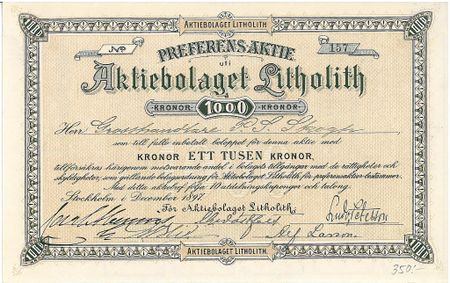 AKTIEBOLAGET LITHOLITH
1000
1000
No
PREFERENS-AKTIE
157
uti
Aktiebolaget Litholith
KRONOR 1000 KRONOR
Herr Grosshandlare
som till fullo inbetalt beloppet för denna aktie med
KRONOR ETT TUSEN KRONOR,
tillförsäkras härigenom motsvarande andel i bolagets tillgångar med de rättigheter och
skyldigheter, som gällande bolagsordning för Aktiebolaget Litholith för preferensaktier bestämmer.
Med detta aktiebref följa 10 utdelningskuponger och talong.
Stockholm i December 1897.
För Aktiebolaget Litholith,
Larson
1000
1000
AKTIEBOLAGET LITHOLITH
350:-